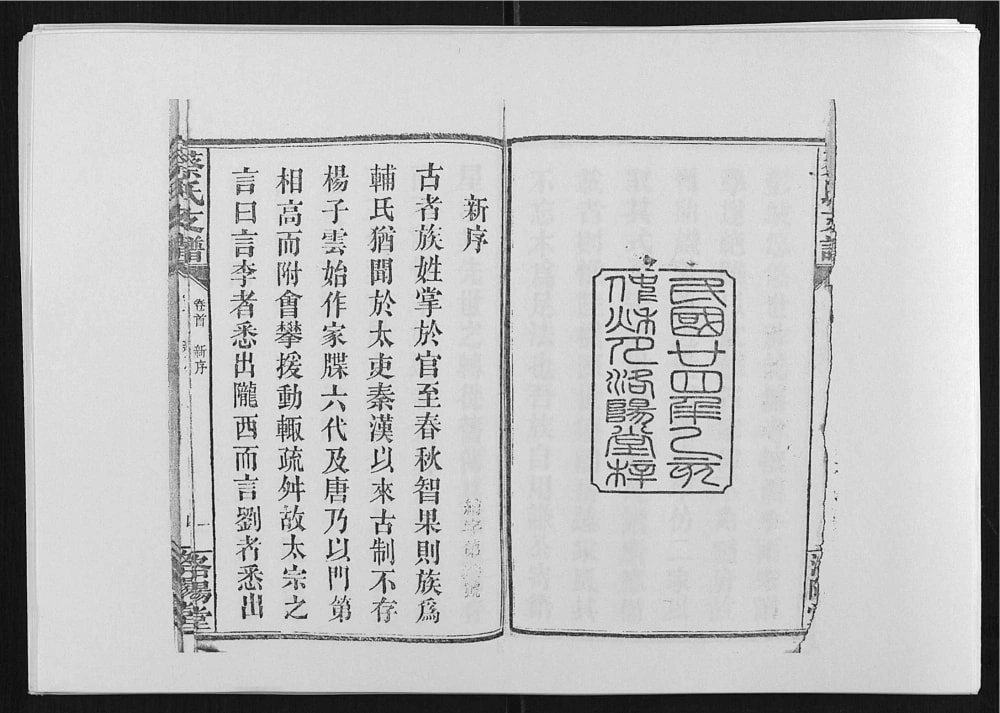 民國廿四年乙亥
洛陽堂梓
新序
古者族姓掌於官至春秋智果則族爲
輔氏猶聞於太吏秦漢以來古制不存
楊子雲始作家牒六代及唐乃以門第
相高而附會攀援動輒疏舛故太宗之
言曰言李者悉出隴西而言劉者悉出
蔡氏支譜
卷首 新序
一
洛陽堂